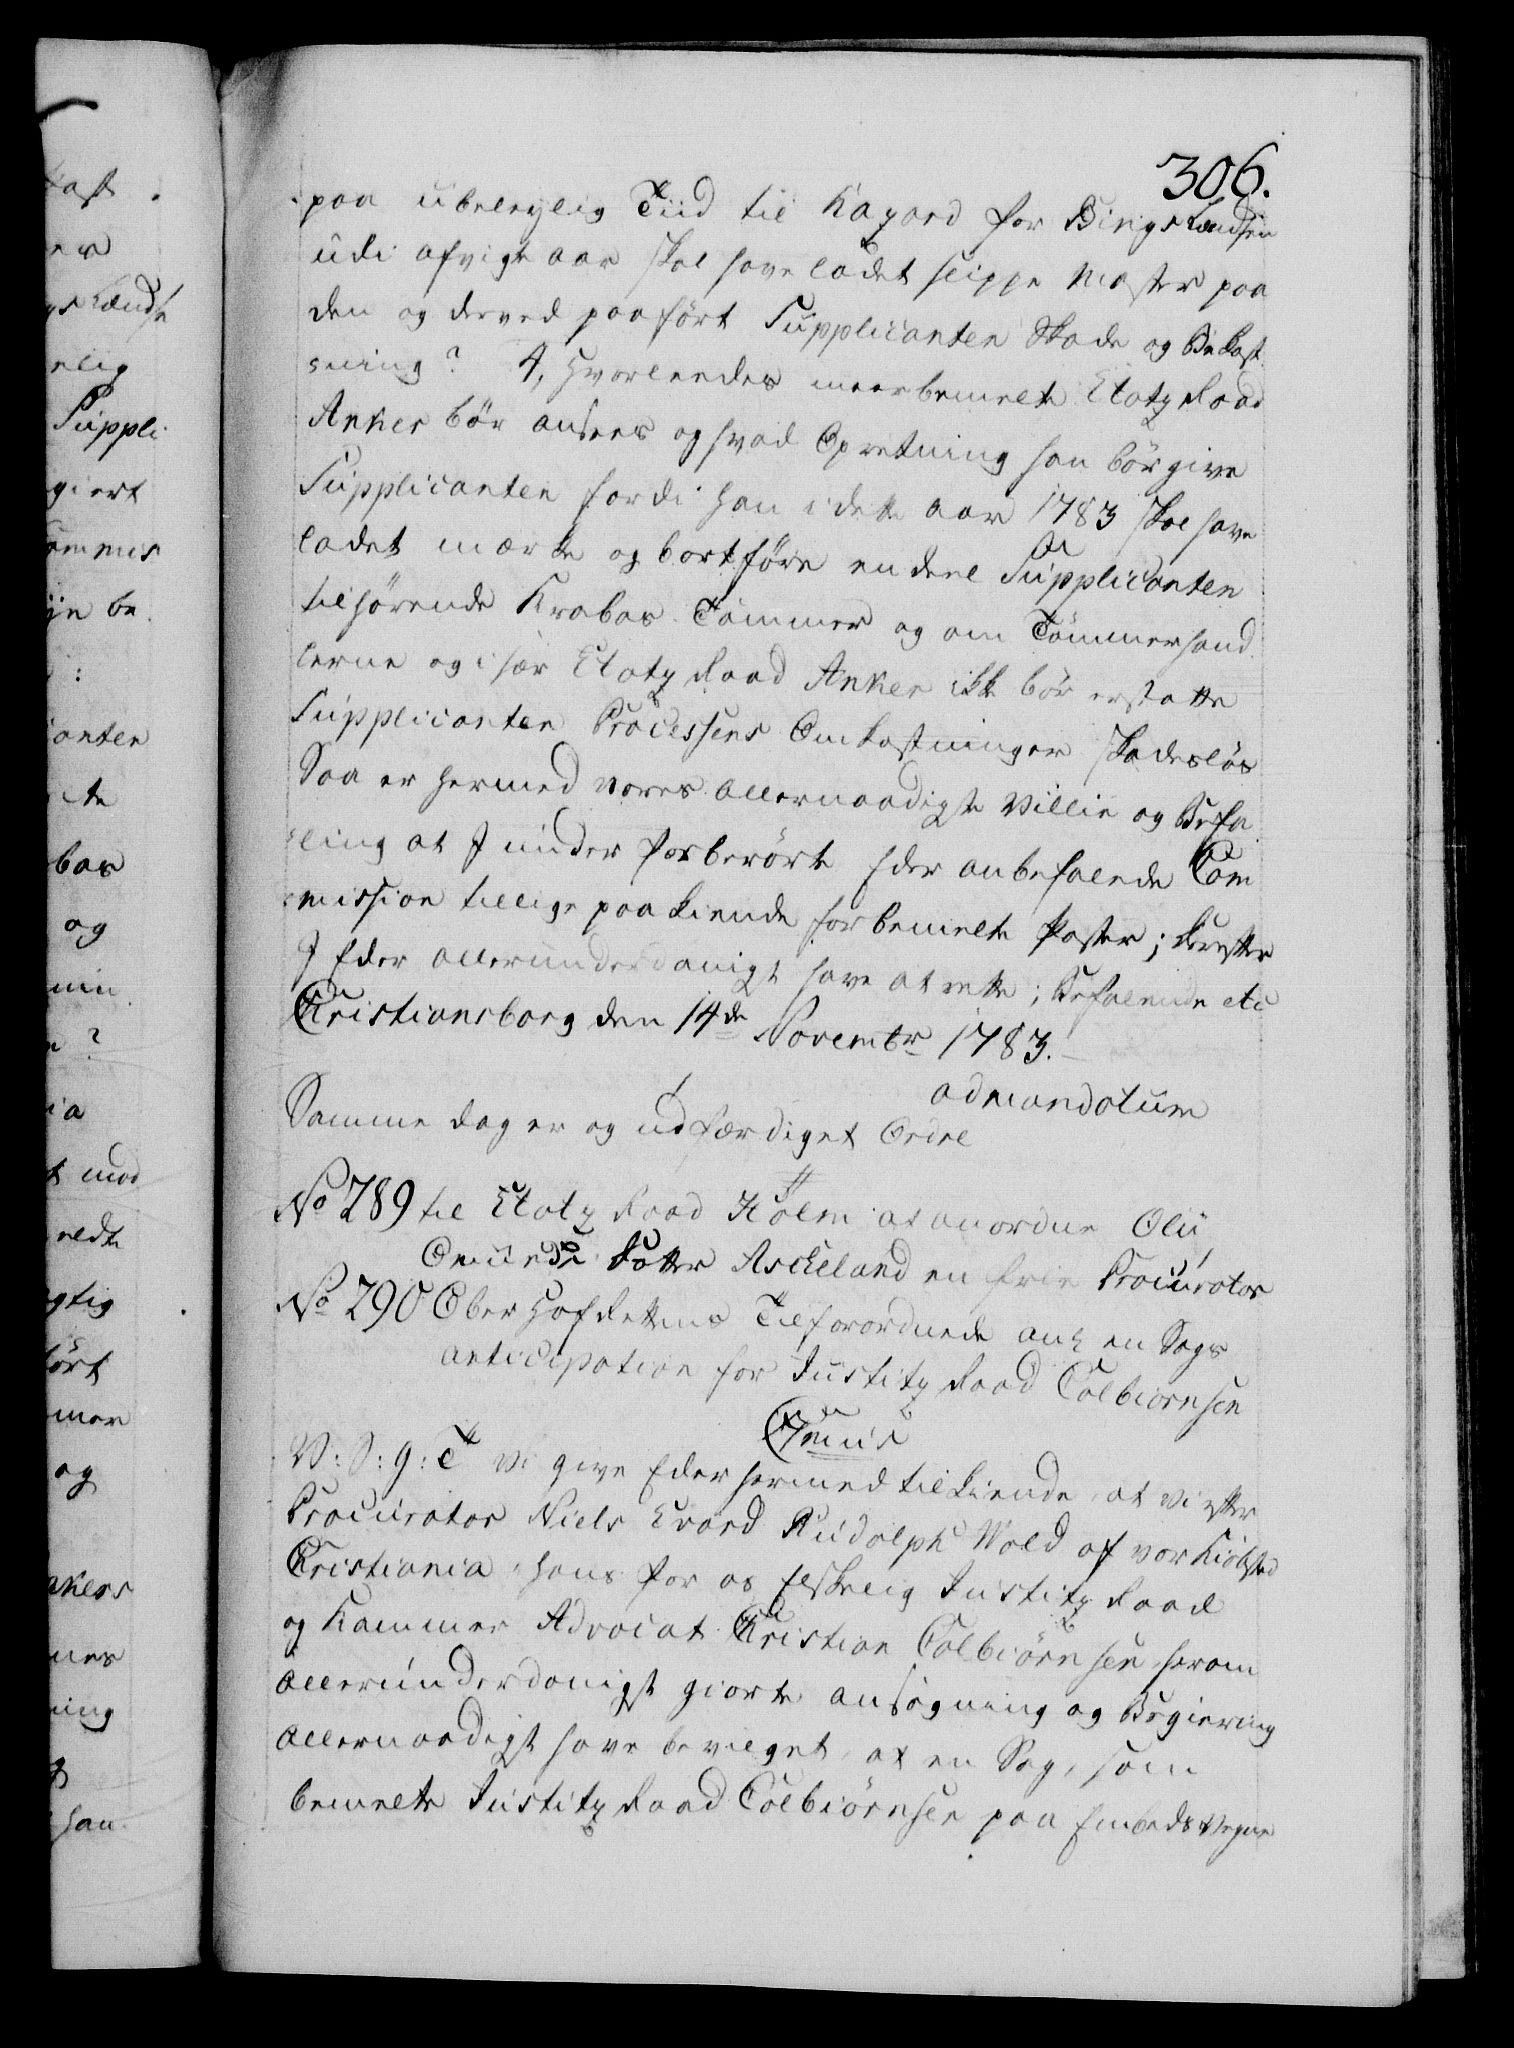 306.
paa ubeleylig Tiid til Hazard for Bings Lændsen
udi afvigte aar skal have ladet slippe Master paa
den og derved paaført Supplicanten Skade og Bekost
ning? 4, Hvorleedes meerbemelte Etatz Raad
Anker bør ansees og hvad Opretning han bør give
Supplicanten fordi han i dette aar 1783 skal have
ladet mærke og bortføre en deel Supplicanten
tilhørende Krabas Tømmer og om Tømmerhand
lerne og i sær Etatz Raad Anker ikke bør erstatte
Supplicanten Processens Omkostninger skadesløs
Saa er hermed vores allernaadigste Villie og Befa
ling at I under forberørte Eder anbefalende Com
mission tillige paakiende forbemelte Poster; Derefter
I Eder allerunderdanigst have at rette; Befalende etc
Christiansborg den 14de Novembr 1783.
ad mandatum
Samme dag er og udfærdiget Ordre
No 289 til Etatz Raad Holm at anordne Oli
Datter Askeland en frie Procurator
No 290 Ober Hof Rettens Tilforordnede ank en Sags
anticipation for Justitz Raad Colbiørnsen
C7mus
V: S: g: T Vi give Eder hermed tilkiende, at vi efter
Procurator Niels Evard Rudolph Wold af vor Kiøbsted
Christiania, hans for os Elskelig Justitz Raad
og Kammer Advocat Christian Colbiørnsen herom
allerunderdanigst giorte ansøgning og Begiering
allernaadigst have bevilget, at en Sag, som
bemelte Justitz Raad Colbiørnsen paa Embeds Vegne